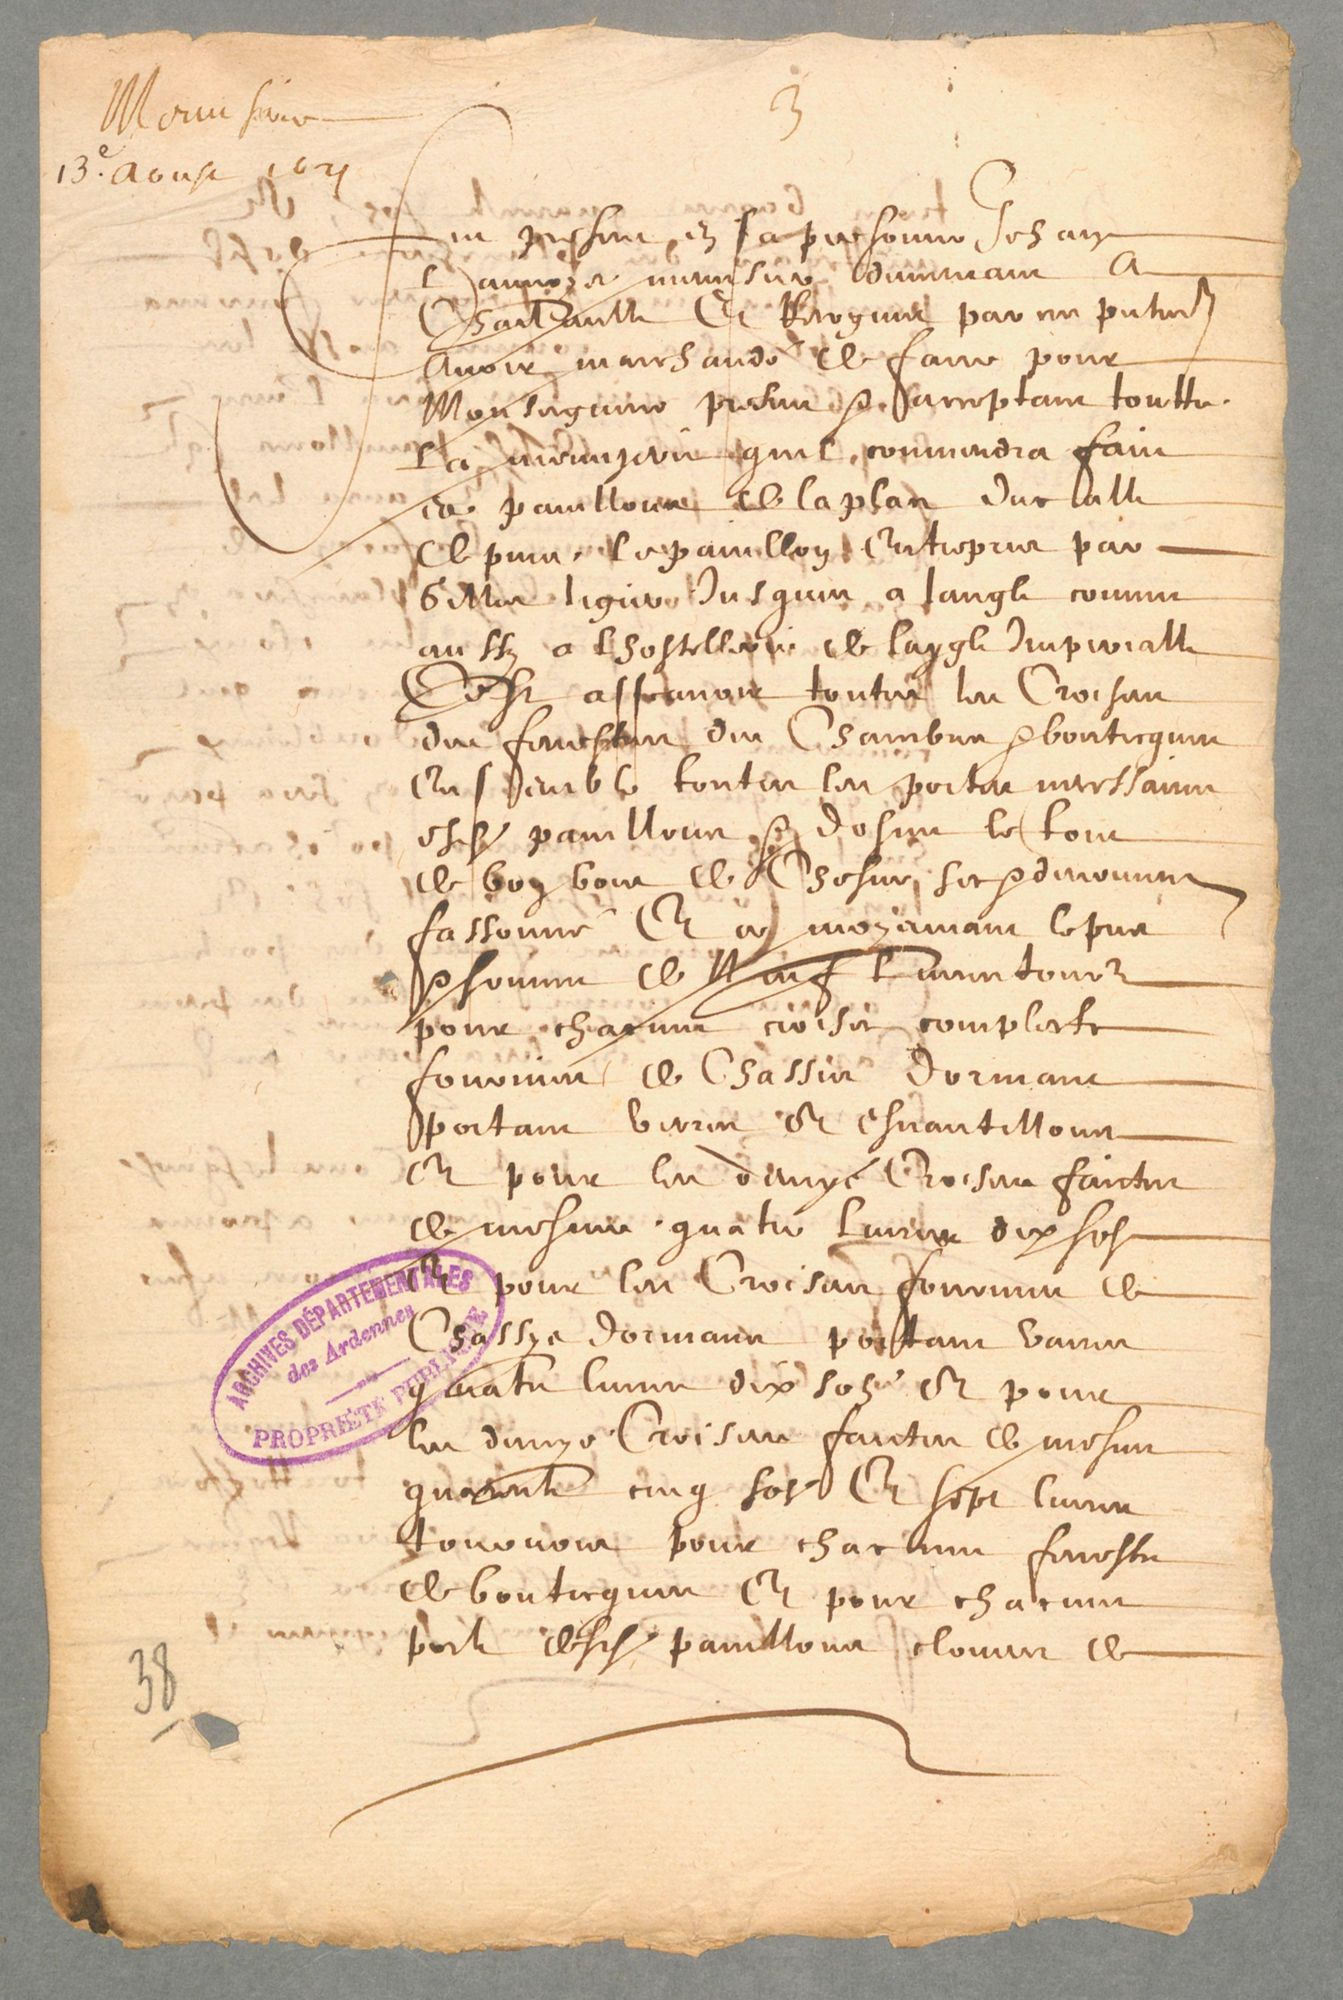 Menuiserie
3
13e. Aoust 1621
Fut present en sa personne Jehan
Lamoze menuisier demeurant a
Charleville Et Recognut par ces presentes
Avoir marchandé de faire pour
Monseigneur present et acceptant toutte
La menuyserie quil conviendra faire
es pavillons de la place ducalle
depuis le pavillon entrepris par
Gilles ligier Jusques a langle comme
aussy a lhostellerie de laygle Imperialle
Cest assavoir touttes les Croisees
des fenestres des Chambres et bouticques
Ensemble touttes les portes necessaires
esdictz pavillons et dosmes le tout
de boy bon de Chesne sec et deuement
fassonné Et ce moyennant le pris
et somme de Neuf Livres tournois
pour chacune croisée complecte
fournie de Chassis dormans
portans verres et eschantillons
Et pour les demyé Croisees faictes
de mesme quatre Livres dix solz
Et pour les Croisees fournies de
Chassye dormans portans verres
quatre livres dix solz Et pour
les demye Croisees faictes de mesme
quarente cinq solz Et sept livres
tournois pour chacune fenestre
de bouticques Et pour chacune
porte desdictz pavillons clouees de
ARCHIVES DÉPARTEMENTALES
des Ardennes
PROPRIÉTÉ PUBLIQUE
38